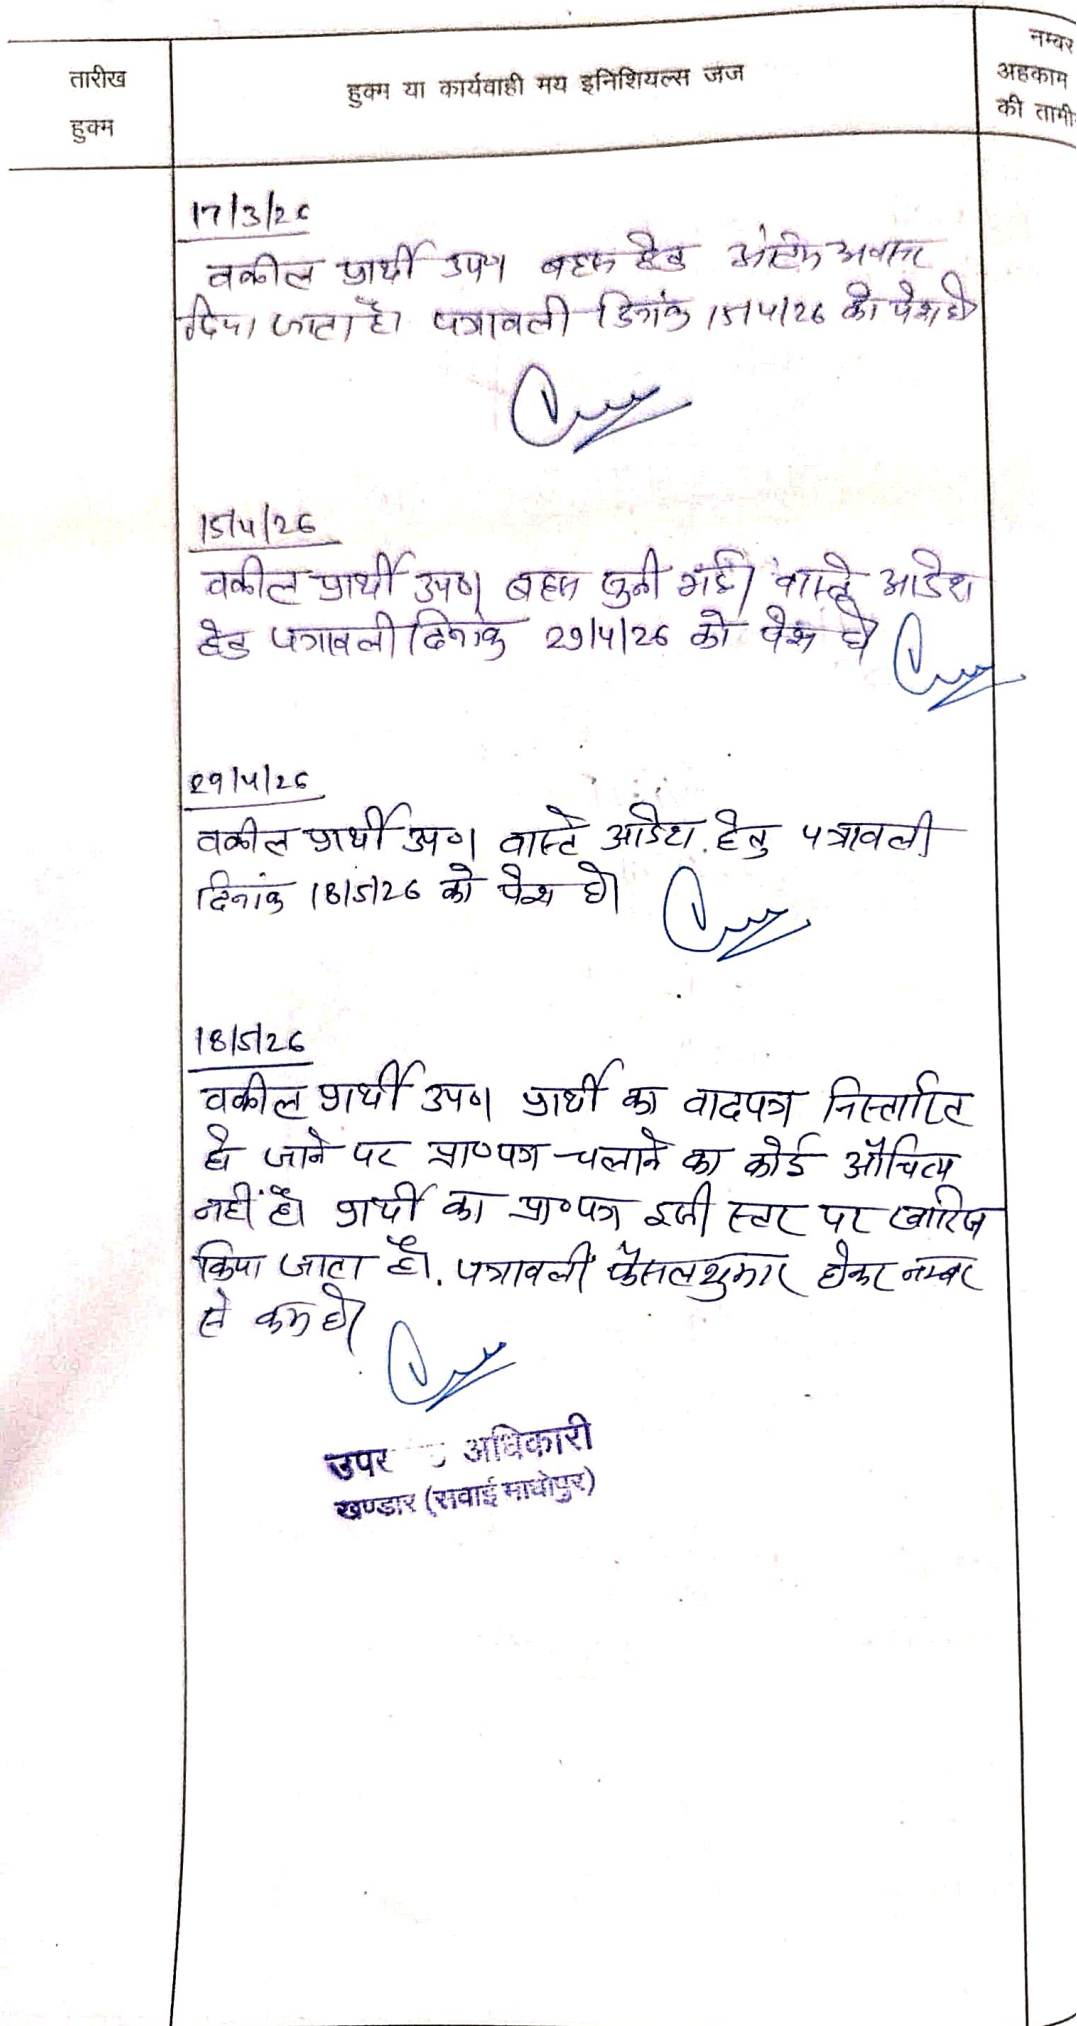 तारीख
हुक्म
हुक्म या कार्यवाही मय इनिशियल्स जज
नम्बर
अहकाम
की तामी
17/3/26
वकील प्रार्थी उप० बहस हेतु अंतिम अवसर
दिया जाता है। पत्रावली दिनांक 15/4/26 को पेश हो
15/4/26
वकील प्रार्थी उप० बहस सुनी गई। वास्ते आदेश
हेतु पत्रावली दिनांक 29/4/26 को पेश हो
29/4/26
वकील प्रार्थी उप० वास्ते आदेश हेतु पत्रावली
दिनांक 18/5/26 को पेश हो।
18/5/26
वकील प्रार्थी उप० प्रार्थी का वादपत्र निस्तारित
हो जाने पर प्रा०पत्र चलाने का कोई औचित्य
नहीं है। प्रार्थी का प्रा०पत्र इसी स्तर पर खारिज
किया जाता है। पत्रावली फैसलशुमार होकर नम्बर
से कम हो।
उपर अधिकारी
खण्डार (सवाई माधोपुर)